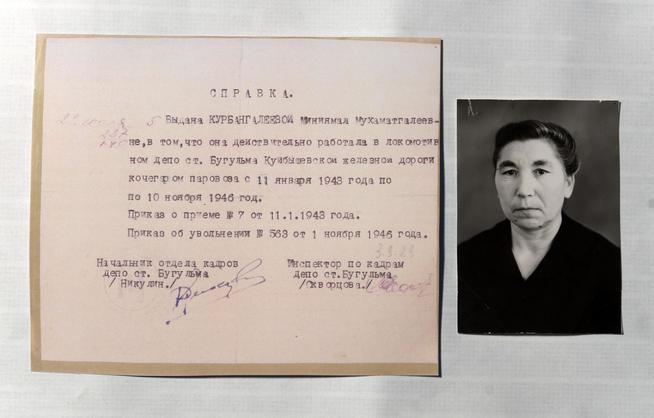 СПРАВКА.
Выдана КУРБАНГАЛЕЕВОЙ Миниямал Мухаматгалеев-
не, в том, что она действительно работала в локомотив
ном депо ст. Бугульма Куйбышевском железной дороги
кочегаром паровоза с 11 января 1943 года по
по 10 ноября 1946 год.
Приказ о приеме № 7 от 11.1.1943 года.
Приказ об увольнении № 563 от 1 ноября 1946 года.
Начальник отдела кадров
депо ст. Бугульма
/Никулин./
Инспектор по кадрам
депо ст.Бугульма
/Скворцова./